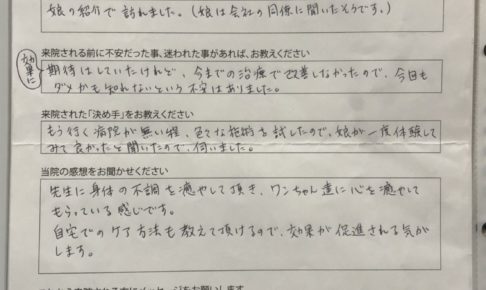 娘の紹介で訪れました。(娘は会社の同僚に聞いたそうです。)
来院される前に不安だった事、迷われた事があれば、お教えください
効果に
期待はしていたけれど、今までの治療で改善しなかったので、今回も
ダメかも知れないという不安はありました。
来院された「決め手」をお教えください
もう行く病院が無い程、色々な施術を試したので、娘が一度体験して
みて良かったと聞いたので、伺いました。
当院の感想をお聞かせください
先生に身体の不調を癒やして頂き、ワンちゃん達に心を癒やして
もらっている感じです。
自宅でのケア方法も教えて頂けるので、効果が促進される気が
します。